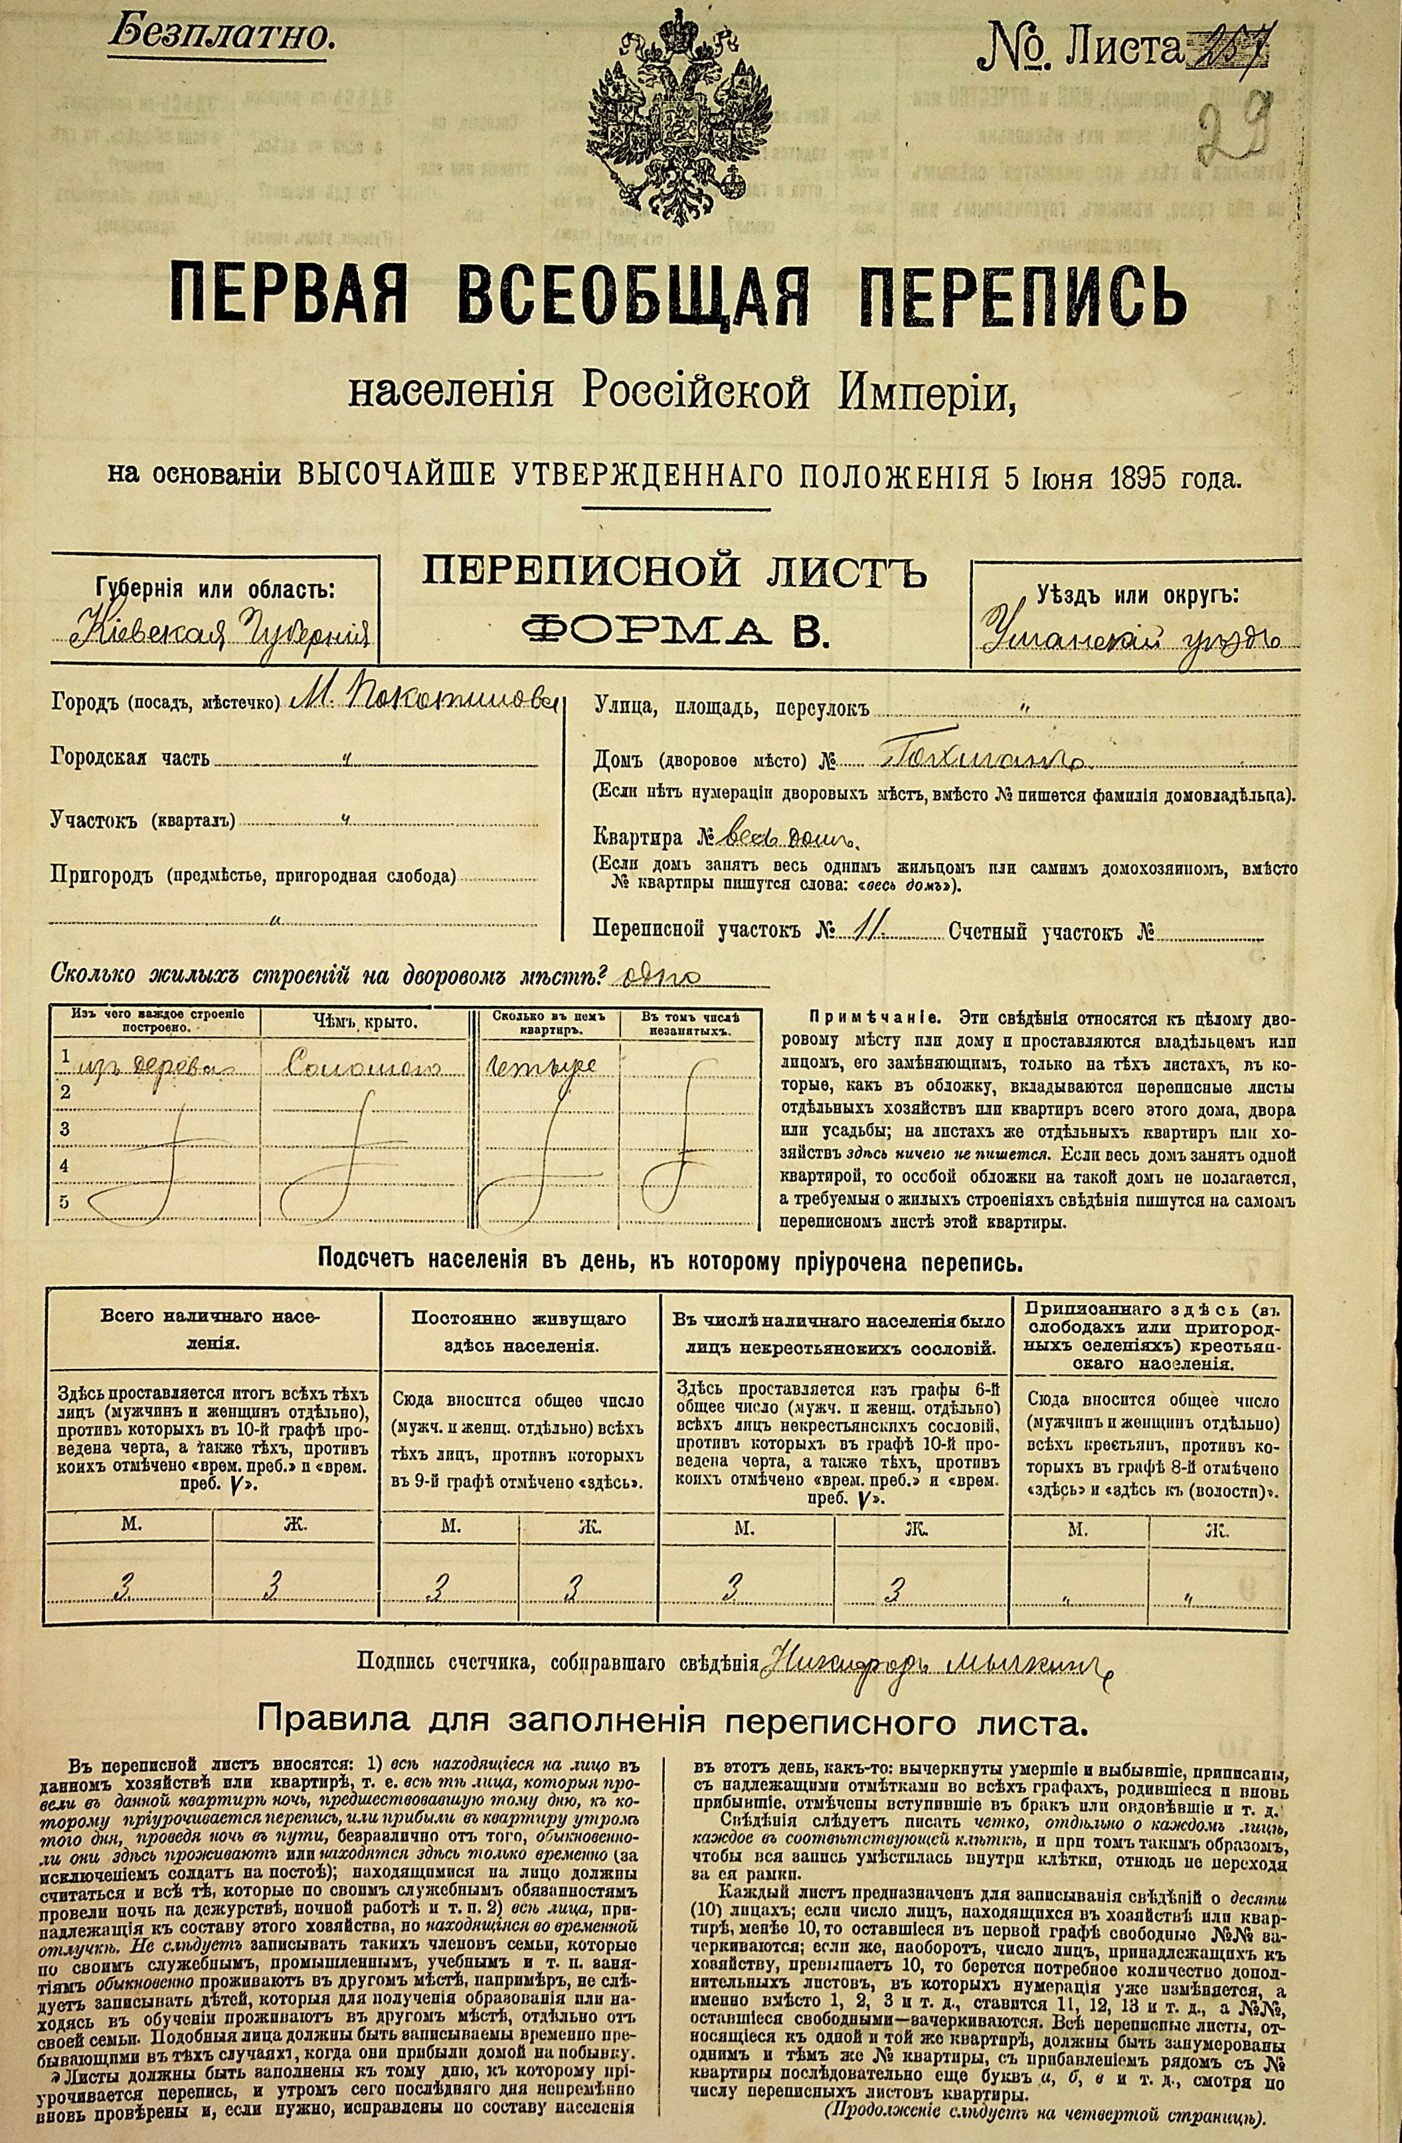 Безплатно.
№. Листа 257
29
ПЕРВАЯ ВСЕОБЩАЯ ПЕРЕПИСЬ
населенія Россійской Имперіи,
на основаніи ВЫСОЧАЙШЕ УТВЕРЖДЕННАГО ПОЛОЖЕНІЯ 5 Іюня 1895 года.
Губернія или область:
Кіевская Губернія
ПЕРЕПИСНОЙ ЛИСТЪ
ФОРМА В.
Уѣздъ или округъ:
Уманскій уѣздъ
Городъ (посадъ, мѣстечко) М. Покотилова
Городская часть "
Участокъ (кварталъ) "
Пригородъ (предмѣстье, пригородная слобода)
"
Улица, площадь, переулокъ "
Домъ (дворовое мѣсто) №
(Если нѣтъ нумераціи дворовыхъ мѣстъ, вмѣсто № пишется фамилія домовладѣльца).
Квартира № весь домъ.
(Если домъ занятъ весь однимъ жильцомъ или самимъ домохозяиномъ, вмѣсто
№ квартиры пишутся слова: «весь домъ»).
Переписной участокъ № 11. Счетный участокъ №
Сколько жилыхъ строеній на дворовомъ мѣстѣ? одно
Изъ чего каждое строеніе построено.
Чѣмъ крыто.
Сколько въ немъ квартиръ.
Въ томъ числѣ незанятыхъ.
1 изъ дерева Соломою четыре
2
3
4
5
Примѣчаніе. Эти свѣдѣнія относятся къ цѣлому дво-
ровому мѣсту или дому и проставляются владѣльцемъ или
лицомъ, его замѣняющимъ, только на тѣхъ листахъ, въ ко-
торые, какъ въ обложку, вкладываются переписные листы
отдѣльныхъ хозяйствъ или квартиръ всего этого дома, двора
или усадьбы; на листахъ же отдѣльныхъ квартиръ или хо-
зяйствъ здѣсь ничего не пишется. Если весь домъ занятъ одной
квартирой, то особой обложки на такой домъ не полагается,
а требуемыя о жилыхъ строеніяхъ свѣдѣнія пишутся на самомъ
переписномъ листѣ этой квартиры.
Подсчетъ населенія въ день, къ которому пріурочена перепись.
Всего наличнаго насе-
ленія.
Здѣсь проставляется итогъ всѣхъ тѣхъ
лицъ (мужчинъ и женщинъ отдѣльно),
противъ которыхъ въ 10-й графѣ про-
ведена черта, а также тѣхъ, противъ
коихъ отмѣчено «врем. преб.» и «врем.
преб. V».
Постоянно живущаго
здѣсь населенія.
Сюда вносится общее число
(мужч. и женщ. отдѣльно) всѣхъ
тѣхъ лицъ, противъ которыхъ
въ 9-й графѣ отмѣчено «здѣсь».
Въ числѣ наличнаго населенія было
лицъ некрестьянскихъ сословій.
Здѣсь проставляется изъ графы 6-й
общее число (мужч. и женщ. отдѣльно)
всѣхъ лицъ некрестьянскихъ сословій,
противъ которыхъ въ графѣ 10-й про-
ведена черта, а также тѣхъ, противъ
коихъ отмѣчено «врем. преб.» и «врем.
преб. V».
Приписаннаго здѣсь (въ
слободахъ или пригород-
ныхъ селеніяхъ) крестьян-
скаго населенія.
Сюда вносится общее число
(мужчинъ и женщинъ отдѣльно)
всѣхъ крестьянъ, противъ ко-
торыхъ въ графѣ 8-й отмѣчено
«здѣсь» и «здѣсь къ (волости)».
М. Ж. М. Ж. М. Ж. М. Ж.
3 3 3 3 3 3 " "
Подпись счетчика, собиравшаго свѣдѣнія Никифоръ
Правила для заполненія переписного листа.
Въ переписной листъ вносятся: 1) всѣ находящіеся на лицо въ
данномъ хозяйствѣ или квартирѣ, т. е. всѣ тѣ лица, которыя про-
вели въ данной квартирѣ ночь, предшествовавшую тому дню, къ ко-
торому пріурочивается перепись, или прибыли въ квартиру утромъ
того дня, проведя ночь въ пути, безразлично отъ того, обыкновенно-
ли они здѣсь проживаютъ или находятся здѣсь только временно (за
исключеніемъ солдатъ на постоѣ); находящимися на лицо должны
считаться и всѣ тѣ, которые по своимъ служебнымъ обязанностямъ
провели ночь на дежурствѣ, ночной работѣ и т. п. 2) всѣ лица, при-
надлежащія къ составу этого хозяйства, но находящіяся во временной
отлучкѣ. Не слѣдуетъ записывать такихъ членовъ семьи, которые
по своимъ служебнымъ, промышленнымъ, учебнымъ и т. п. заня-
тіямъ обыкновенно проживаютъ въ другомъ мѣстѣ, напримѣръ, не слѣ-
дуетъ записывать дѣтей, которыя для полученія образованія или на-
ходясь въ обученіи проживаютъ въ другомъ мѣстѣ, отдѣльно отъ
своей семьи. Подобныя лица должны быть записываемы временно пре-
бывающими въ тѣхъ случаяхъ, когда они прибыли домой на побывку.
Листы должны быть заполнены къ тому дню, къ которому прі-
урочивается перепись, и утромъ сего послѣдняго дня непремѣнно
вновь провѣрены и, если нужно, исправлены по составу населенія
въ этотъ день, какъ-то: вычеркнуты умершіе и выбывшіе, приписаны,
съ надлежащими отмѣтками во всѣхъ графахъ, родившіеся и вновь
прибывшіе, отмѣчены вступившіе въ бракъ или овдовѣвшіе и т. д.
Свѣдѣнія слѣдуетъ писать четко, отдѣльно о каждомъ лицѣ,
каждое въ соотвѣтствующей клѣткѣ, и при томъ такимъ образомъ,
чтобы вся запись умѣстилась внутри клѣтки, отнюдь не переходя
за ея рамки.
Каждый листъ предназначенъ для записыванія свѣдѣній о десяти
(10) лицахъ; если число лицъ, находящихся въ хозяйствѣ или квар-
тирѣ, менѣе 10, то оставшіеся въ первой графѣ свободные №№ за-
черкиваются; если же, наоборотъ, число лицъ, принадлежащихъ къ
хозяйству, превышаетъ 10, то берется потребное количество допол-
нительныхъ листовъ, въ которыхъ нумерація уже измѣняется, а
именно вмѣсто 1, 2, 3 и т. д., ставится 11, 12, 13 и т. д., а №№,
оставшіеся свободными—зачеркиваются. Всѣ переписные листы, от-
носящіеся къ одной и той же квартирѣ, должны быть занумерованы
однимъ и тѣмъ же № квартиры, съ прибавленіемъ рядомъ съ №
квартиры послѣдовательно еще буквъ а, б, в и т. д., смотря по
числу переписныхъ листовъ квартиры.
(Продолженіе слѣдуетъ на четвертой страницѣ).